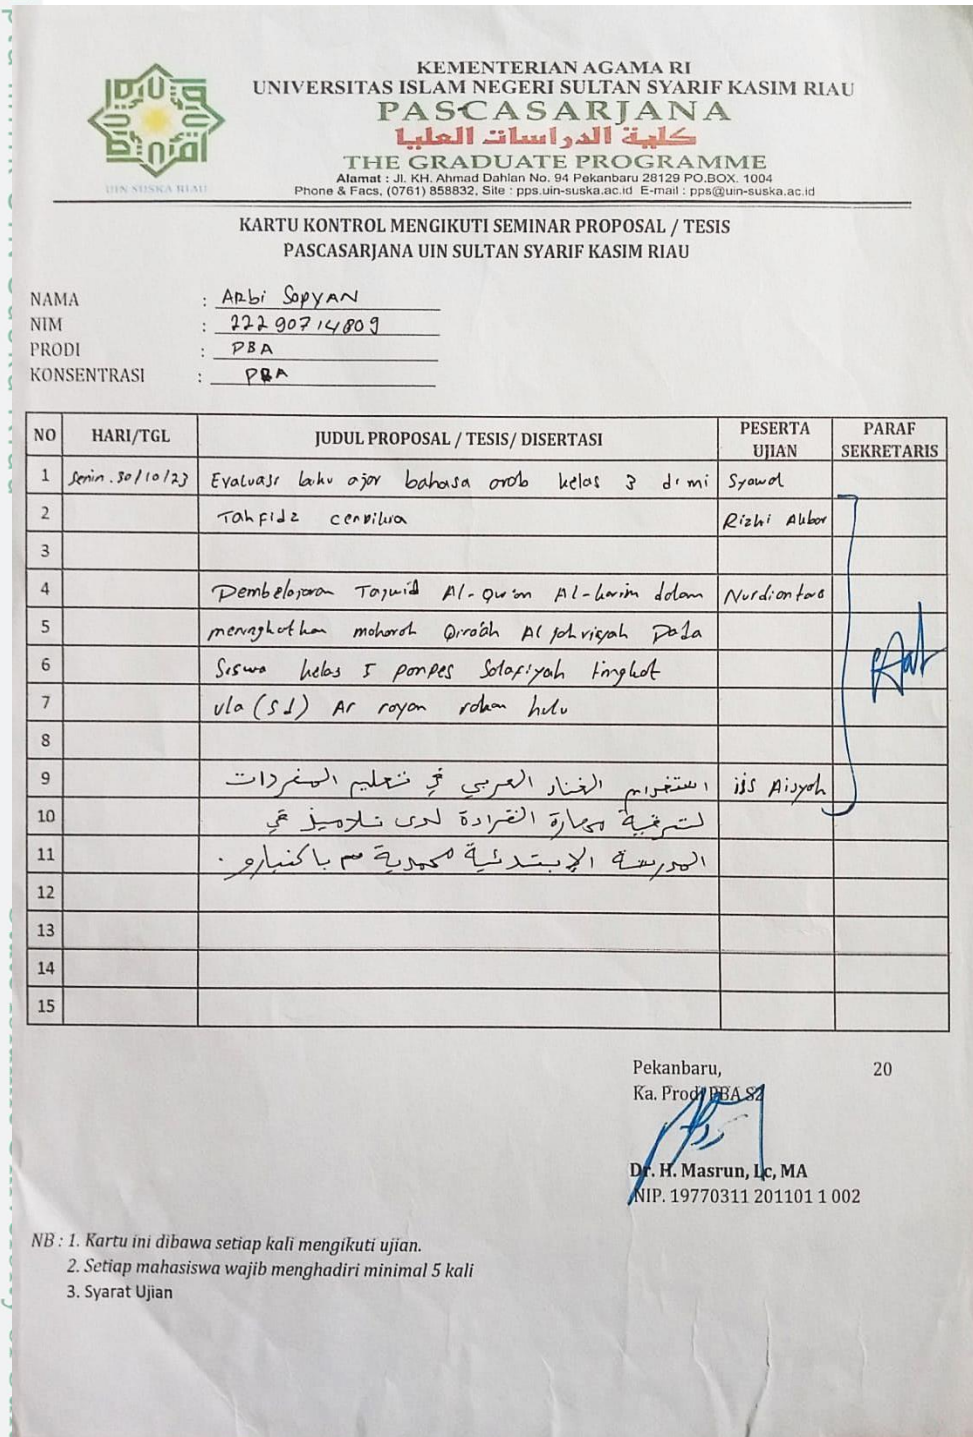 KEMENTERIAN AGAMA RI
UNIVERSITAS ISLAM NEGERI SULTAN SYARIF KASIM RIAU
PASCASARJANA
كلية الدراسات العليا
THE GRADUATE PROGRAMME
Alamat : Jl. KH. Ahmad Dahlan No. 94 Pekanbaru 28129 PO.BOX. 1004
Phone & Facs, (0761) 858832, Site : pps.uin-suska.ac.id E-mail : pps@uin-suska.ac.id
UIN SUSKA RIAU
KARTU KONTROL MENGIKUTI SEMINAR PROPOSAL / TESIS
PASCASARJANA UIN SULTAN SYARIF KASIM RIAU
NAMA : Arbi Sopyan
NIM : 22290714809
PRODI : PBA
KONSENTRASI : PBA
NO HARI/TGL JUDUL PROPOSAL / TESIS/ DISERTASI PESERTA UJIAN PARAF SEKRETARIS
1 Senin. 30/10/23 Evaluasi buku ajar bahasa arab kelas 3 di mi Syawal
2 Tahfidz Rizki Akbar
3
4 Pembelajaran Tajwid Al-Qur'an Al-karim dalam Nurdiantara
5 meningkatkan maharoh Qiroah Al jahriyah Pada
6 Siswa kelas 5 ponpes Salafiyah tingkat
7 ula (Sd) Ar royan rokan hulu
8
9 استخدام الغناء العربي في تعليم المفردات iis Aisyah
10 لترقية مهارة القراءة لدى تلاميذ في
11 المدرسة الإبتدئية محمدية باكنبارو.
12
13
14
15
Pekanbaru, 20
Ka. Prodi PBA S2
Dr. H. Masrun, Lc, MA
NIP. 19770311 201101 1 002
NB : 1. Kartu ini dibawa setiap kali mengikuti ujian.
2. Setiap mahasiswa wajib menghadiri minimal 5 kali
3. Syarat Ujian